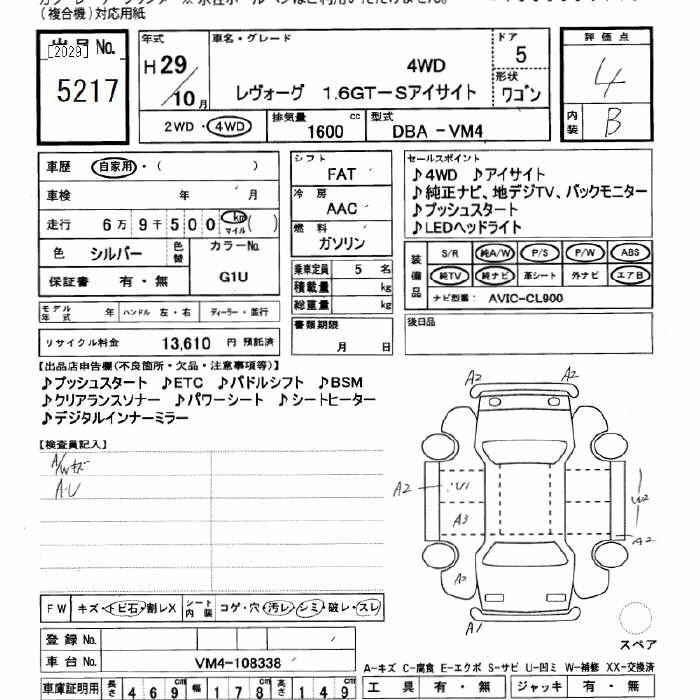 (複合機)対応用紙
出品No.
[2029]
5217
年式
H29/10月
車名・グレード
4WD
レヴォーグ 1.6GT-Sアイサイト
ドア
5
形状
ワゴン
2WD・4WD
排気量 1600 cc
型式 DBA-VM4
評価点
4
内装
B
車歴 自家用・( )
車検 年 月
走行 6万9千500 km マイル ( )
色 シルバー 色替
カラーNo. G1U
保証書 有・無
モデル年式 年 ハンドル 左・右 ディーラー・並行
リサイクル料金 13,610 円 預託済
シフト
FAT
冷房
AAC
燃料
ガソリン
乗車定員 5 名
積載量 kg
総重量 kg
書類期限
月 日
セールスポイント
♪4WD ♪アイサイト
♪純正ナビ、地デジTV、バックモニター
♪プッシュスタート
♪LEDヘッドライト
装備品
S/R 純A/W P/S P/W ABS
純TV 純ナビ 革シート 外ナビ エアB
ナビ型番: AVIC-CL900
後日品
【出品店申告欄(不良箇所・欠品・注意事項等)】
♪プッシュスタート ♪ETC ♪パドルシフト ♪BSM
♪クリアランスソナー ♪パワーシート ♪シートヒーター
♪デジタルインナーミラー
【検査員記入】
A/Wキズ
A-U
A2 A2
A2 U1 W2
A3
A2
A2
A1
スペア
FW キズ・トビ石・割レX シート内装 コゲ・穴・汚レ・シミ・破レ・スレ
登録No.
車台No. VM4-108338
車庫証明用 長さ 469cm 幅 178cm 高さ 149cm
A-キズ C-腐食 E-エクボ S-サビ U-凹ミ W-補修 XX-交換済
工具 有・無 ジャッキ 有・無